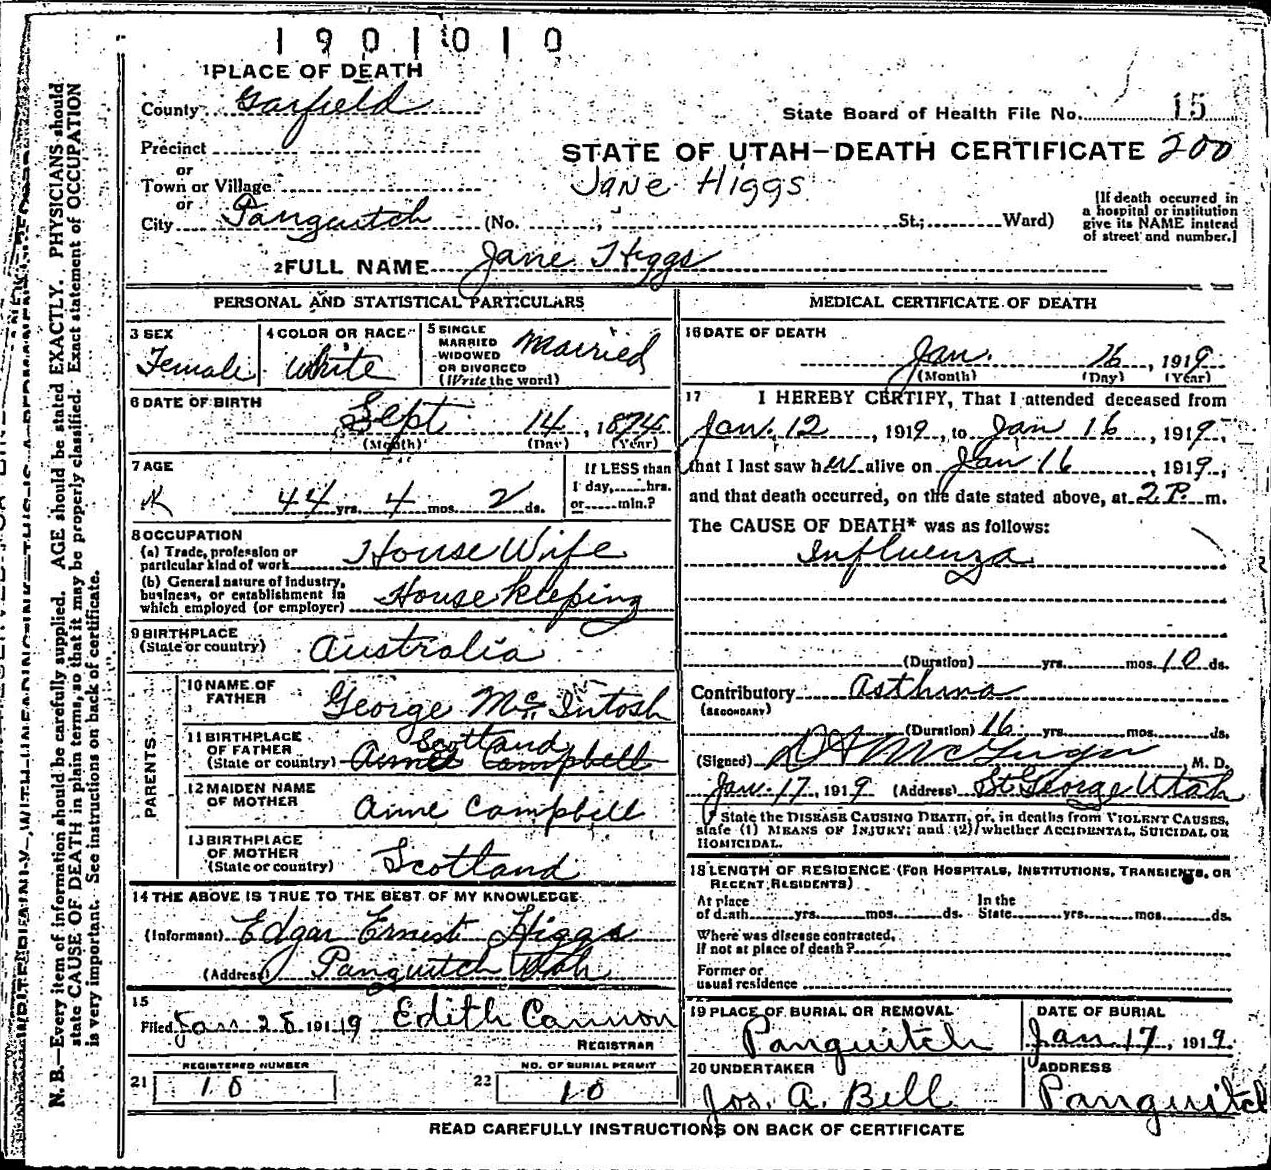 1901010
1 PLACE OF DEATH
County Garfield
State Board of Health File No. 15
Precinct
or
STATE OF UTAH—DEATH CERTIFICATE 200
Town or Village
Jane Higgs
or
City Panguitch (No. , St; Ward)
[If death occurred in a hospital or institution give its NAME instead of street and number.]
2 FULL NAME Jane Higgs
PERSONAL AND STATISTICAL PARTICULARS
3 SEX
Female
4 COLOR OR RACE
White
5 SINGLE
MARRIED
WIDOWED
OR DIVORCED
(Write the word)
Married
6 DATE OF BIRTH
Sept 14, 1874
(Month) (Day) (Year)
7 AGE
44 yrs. 4 mos. 2 ds.
If LESS than
1 day, hrs.
or min.?
8 OCCUPATION
(a) Trade, profession or
particular kind of work House Wife
(b) General nature of industry,
business, or establishment in
which employed (or employer) House Kleping
9 BIRTHPLACE
(State or country) Australia
PARENTS
10 NAME OF
FATHER George McIntosh
11 BIRTHPLACE
OF FATHER Scotland
(State or country) Annie Campbell
12 MAIDEN NAME
OF MOTHER Anne Campbell
13 BIRTHPLACE
OF MOTHER
(State or country) Scotland
14 THE ABOVE IS TRUE TO THE BEST OF MY KNOWLEDGE
(Informant) Edgar Ernest Higgs
(Address) Panguitch Utah
15
Filed Jan 28 191 19 Edith Cannon
REGISTRAR
REGISTERED NUMBER
21 10
NO. OF BURIAL PERMIT
22 10
MEDICAL CERTIFICATE OF DEATH
16 DATE OF DEATH
Jan. 16, 1919
(Month) (Day) (Year)
17 I HEREBY CERTIFY, That I attended deceased from
Jan. 12, 1919, to Jan 16, 1919,
that I last saw her alive on Jan 16, 1919,
and that death occurred, on the date stated above, at 2 P. m.
The CAUSE OF DEATH* was as follows:
Influenza
(Duration) yrs. mos. 10 ds.
Contributory Asthma
(SECONDARY)
(Duration) 16 yrs. mos. ds.
(Signed) M. D.
Jan. 17, 1919 (Address) St. George Utah
* State the DISEASE CAUSING DEATH, or, in deaths from VIOLENT CAUSES,
state (1) MEANS OF INJURY; and (2) whether ACCIDENTAL, SUICIDAL OR
HOMICIDAL.
18 LENGTH OF RESIDENCE (FOR HOSPITALS, INSTITUTIONS, TRANSIENTS, OR
RECENT RESIDENTS)
At place
of death yrs. mos. ds.
In the
State yrs. mos. ds.
Where was disease contracted,
If not at place of death?
Former or
usual residence
19 PLACE OF BURIAL OR REMOVAL
Panguitch
DATE OF BURIAL
Jan 17, 1919.
20 UNDERTAKER
Jos. A. Bell
ADDRESS
Panguitch
READ CAREFULLY INSTRUCTIONS ON BACK OF CERTIFICATE
N. B.—Every item of information should be carefully supplied. AGE should be stated EXACTLY. PHYSICIANS should
state CAUSE OF DEATH in plain terms, so that it may be properly classified. Exact statement of OCCUPATION
is very important. See instructions on back of certificate.